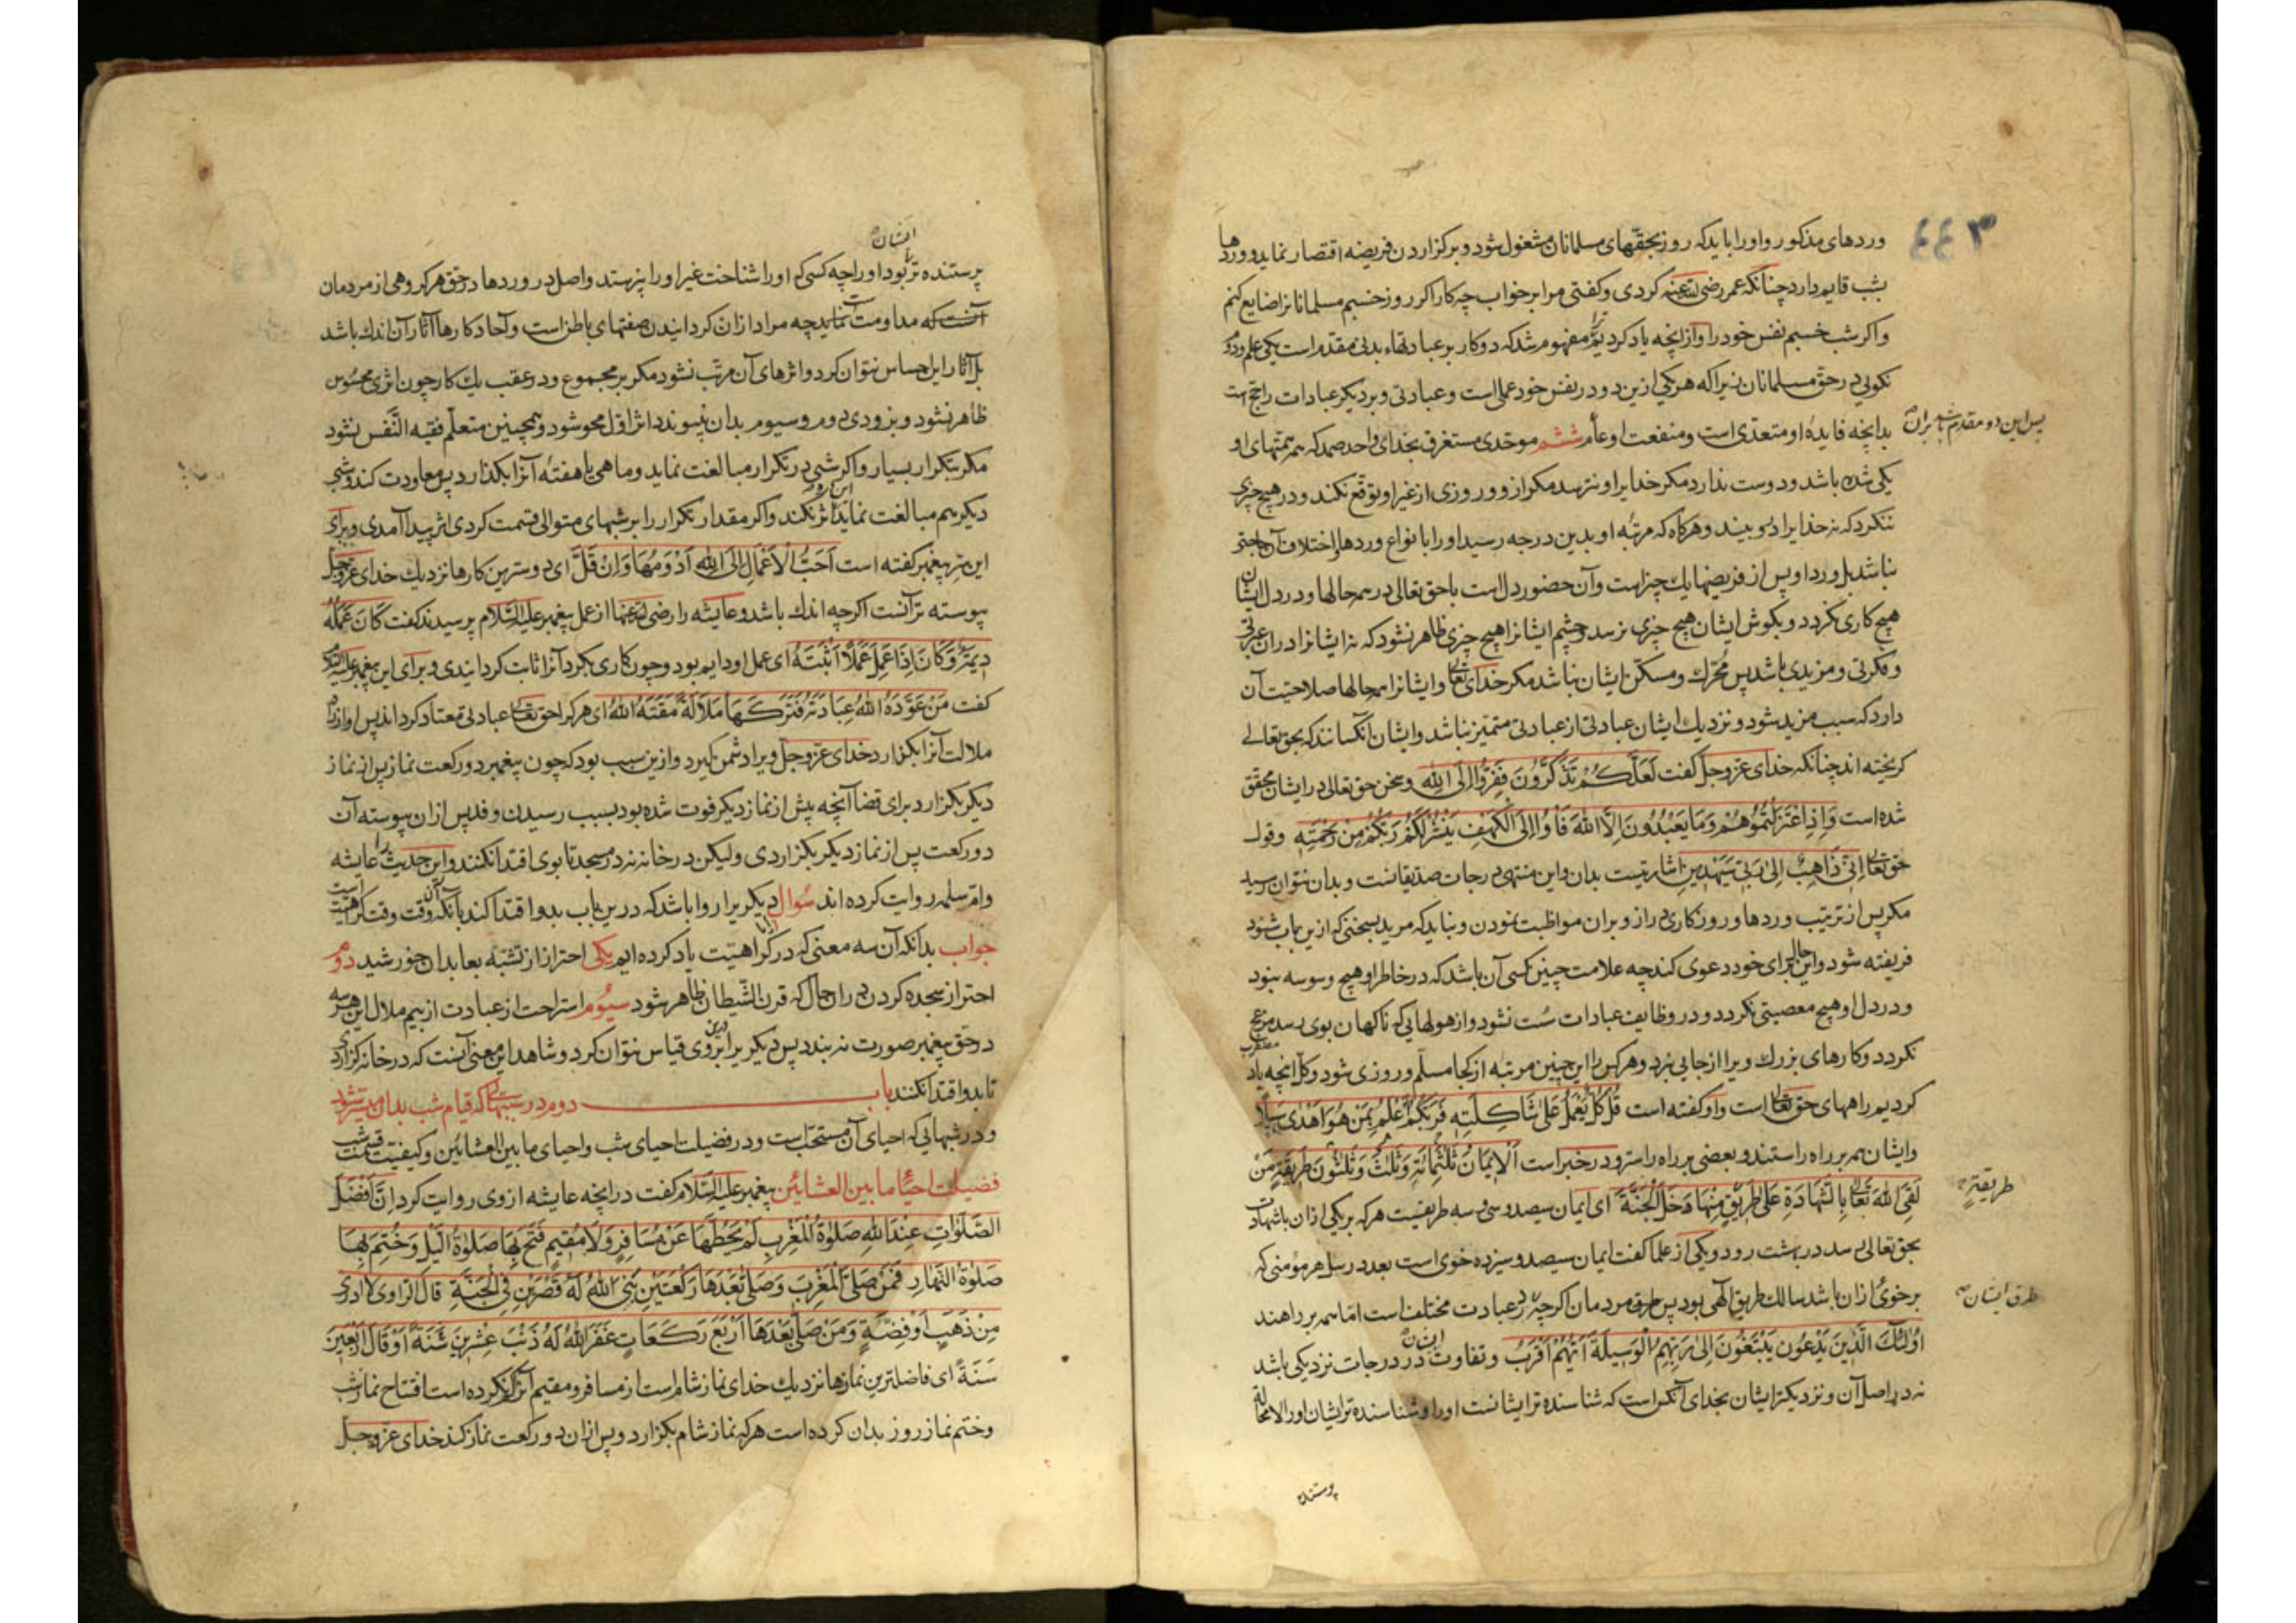 وردهای مذکور و او را باید که روز بحقهای مسلمانان مشغول شود و بر کزاردن فریضه اقتصار نماید و وردها
بشب قایم دارد چنانکه عمر رضی الله عنه کردی و کفتی مرا بر خواب چه کار اکر روز خسبم مسلمانانرا ضایع کنم
و اکر شب خسبم نفس خود را و از انچه یاد کردیم ترا مفهوم شد که دو کار بر عبادتهاء بدنی مقدم است یکی علم و دوم
نکویی در حق مسلمانان زیرا که هر یکی ازین دو در نفس خود عملی است و عبادتی و بر دیکر عبادات راجح است
بدانچه فایدهٔ او متعدی است و منفعت او عام ششم موحدی مستغرق بخدای واحد صمد که همه همتهای او
پس این دو مقدم شد بران
یکی شده باشد و دوست ندارد مکر خدایرا و نترسد مکر ازو و روزی از غیر او توقع نکند و در هیچ چیزی
ننکرد که نه خدایرا درو بیند و هرکاه که مرتبه او بدین درجه رسید او را بانواع وردها و اختلاف آن حاجتی
نباشد بل ورد او پس از فریضها یک چیزاست و آن حضور دل است با حق تعالی در همه حالها و در دل ایشان
هیچ کاری نکردد و بکوش ایشان هیچ چیزی نرسد و چشم ایشانرا هیچ چیزی ظاهر نشود که نه ایشانرا دران عبرتی
و فکرتی و مزیدی باشد پس محرک و مسکن ایشان نباشد مکر خدای تعالی و ایشانرا همه حالها صلاحیت آن
دارد که سبب مزید شود و نزدیک ایشان عبادتی از عبادتی متمیز نباشد و ایشان آنکسانند که بحق تعالی
کریخته اند چنانکه خدای عز و جل کفت لَعَلَّكُمْ تَذَكَّرُونَ فَفِرُّوا اِلَى اللهِ و سخن حق تعالی در ایشان محقق
شده است وَاِذِ اعْتَزَلْتُمُوهُمْ وَمَا يَعْبُدُونَ اِلَّا اللهَ فَأْوُا اِلَى الْكَهْفِ يَنْشُرْ لَكُمْ رَبُّكُمْ مِنْ رَحْمَتِهِ و قول
حق تعالی اِنِّي ذَاهِبٌ اِلَى رَبِّي سَيَهْدِينِ اشارتیست بدان و این منتهی درجات صدیقانست و بدان نتوان رسید
مکر پس از ترتیب وردها و روزکاری دراز و بران مواظبت نمودن و نباید که مرید بسخنی که ازین باب شنود
فریفته شود و این حال برای خود دعوی کند چه علامت چنین کسی آن باشد که در خاطر او هیچ وسوسه نبود
و در دل او هیچ معصیتی نکردد و در وظایف عبادات سست نشود و از هولهایی که ناکهان بوی رسد مزعج
نکردد و کارهای بزرک ویرا از جایی نبرد و هر کس را این چنین مرتبه از کجا مسلم و روزی شود و کل انچه یاد
کردیم راههای حق تعالی است و او کفته است قُلْ كُلٌّ يَعْمَلُ عَلَى شَاكِلَتِهِ فَرَبُّكُمْ اَعْلَمُ بِمَنْ هُوَ اَهْدَى سَبِيلًا
و ایشان همه بر راه راستند و بعضی بر راه راست‌تر و در خبر است اَلْاِيمَانُ ثَلٰثُمِائَةٍ وَثَلٰثٌ وَثَلٰثُونَ طَرِيقَةً مَنْ
لَقِيَ اللهَ تَعَالَى بِالشَّهَادَةِ عَلَى طَرِيقٍ مِنْهَا دَخَلَ الْجَنَّةَ ای ایمان سیصد و سی و سه طریقست هر که بر یکی ازان باشهادت
طریقتة
بحق تعالی رسد در بهشت رود و یکی از علما کفت ایمان سیصد و سیزده خوی است بعدد رسل هر مؤمنی که
بر خوی ازان باشد سالک طریق آلهی بود پس طرق مردمان اکرچه در عبادت مختلف است اما همه بر راهند
طرق ایشان
اُولٰئِكَ الَّذِينَ يَدْعُونَ يَبْتَغُونَ اِلَى رَبِّهِمُ الْوَسِيلَةَ اَيُّهُمْ اَقْرَبُ و تفاوت ایشان در درجات نزدیکی باشد
نه در اصل آن و نزدیکتر ایشان بخدای آنکس است که شناسنده تر ایشانست او را و شناسنده تر ایشان او را لامحاله
پرستنده
پرستنده تر بود او را چه کسی که او را شناخت غیر او را نپرستد و اصل در وردها در حق هر کروهی از مردمان
ایشان
آنست که مداومت نمایند چه مراد ازان کردانیدن صفتهای باطن است و آحاد کارها آثار آن اندک باشد
بل آثار این احساس نتوان کرد و اثرهای آن مرتب نشود مکر بر مجموع و در عقب یک کار چون اثری محسوس
ظاهر نشود و بزودی دوم و سیوم بدان نپیوندد اثر اول محو شود و همچنین متعلم فقیه النفس نشود
مکر بتکرار بسیار و اکر شبی در تکرار مبالغت نماید و ماهی یا هفته آنرا بکذارد پس معاودت کند و شبی
دیکر هم مبالغت نماید اثر نکند و اکر مقدار تکرار را بر شبهای متوالی قسمت کردی اثر پیدا آمدی و برای
این سر پیغمبر کفته است اَحَبُّ الْاَعْمَالِ اِلَى اللهِ اَدْوَمُهَا وَاِنْ قَلَّ ای دوسترین کارها نزدیک خدای عز و جل
پیوسته ترآنست اکرچه اندک باشد و عایشه را رضی الله عنها از عمل پیغمبر علیه السلام پرسیدند کفت كَانَ عَمَلُهُ
دِيمَةً وَكَانَ اِذَا عَمِلَ عَمَلًا اَثْبَتَهُ ای عمل او دایم بود و چون کاری بکردی آنرا ثابت کردانیدی و برای این پیغمبر علیه السلام
کفت مَنْ عَوَّدَهُ اللهُ عِبَادَةً فَتَرَكَهَا مَلَالَةً مَقَتَهُ اللهُ ای هر کرا حق تعالی عبادتی معتاد کرداند پس او از راه
ملالت آنرا بکذارد خدای عز و جل ویرا دشمن کیرد و ازین سبب بود که چون پیغمبر دو رکعت نماز پس از نماز
دیکر بکزارد برای قضا آنچه پیش از نماز دیکر فوت شده بود بسبب رسیدن وفد پس ازان پیوسته آن
دو رکعت پس از نماز دیکر بکزاردی ولیکن در خانه نه در مسجد تا بوی اقتدا نکنند و این حدیث را عایشه
و ام سلمه روایت کرده اند سؤال دیکریرا روا باشد که درین باب بدو اقتدا کند با آنکه آن وقت وقت کراهیت است
جواب بدانکه آن سه معنی که در کراهیت یاد کرده ایم یکی احتراز از تشبه بعابدان خورشید دوم
احتراز سجده کردن دران حال که قرن الشیطان ظاهر شود سیوم استراحت از عبادت از بیم ملال این هر سه
در حق پیغمبر صورت نه بندد پس دیکریرا درین بروی قیاس نتوان کرد و شاهد این معنی آنست که در خانه کزاردی
تا بدو اقتدا نکنند باب دوم در سببهایی که قیام شب بدان میسر شود
و در شبهایی که احیای آن مستحب است و در فضیلت احیای شب و احیای ما بین العشائین و کیفیت قسمت شب
فضیلت احیاء ما بین العشائین پیغمبر علیه السلام کفت در انچه عایشه از وی روایت کرد اِنَّ اَفْضَلَ
الصَّلَوٰاتِ عِنْدَ اللهِ صَلٰوةُ الْمَغْرِبِ لَمْ يَحُطَّهَا عَنْ مُسَافِرٍ وَلَا مُقِيمٍ فَتَحَ بِهَا صَلٰوةَ اللَّيْلِ وَخَتَمَ بِهَا
صَلٰوةَ النَّهَارِ فَمَنْ صَلَّى الْمَغْرِبَ وَصَلَّى بَعْدَهَا رَكْعَتَيْنِ بَنَى اللهُ لَهُ قَصْرَيْنِ فِي الْجَنَّةِ قال الراوی لا ادری
مِنْ ذَهَبٍ اَوْ فِضَّةٍ وَمَنْ صَلَّى بَعْدَهَا اَرْبَعَ رَكَعَاتٍ غَفَرَ اللهُ لَهُ ذَنْبَ عِشْرِينَ سَنَةً اَوْ قَالَ اَرْبَعِينَ
سَنَةً ای فاضلترین نمازها نزدیک خدای نماز شام است از مسافر و مقیم آنرا کم نکرده است افتتاح نماز شب
و ختم نماز روز بدان کرده است هر که نماز شام بکزارد و پس ازان دو رکعت نماز کند خدای عز و جل